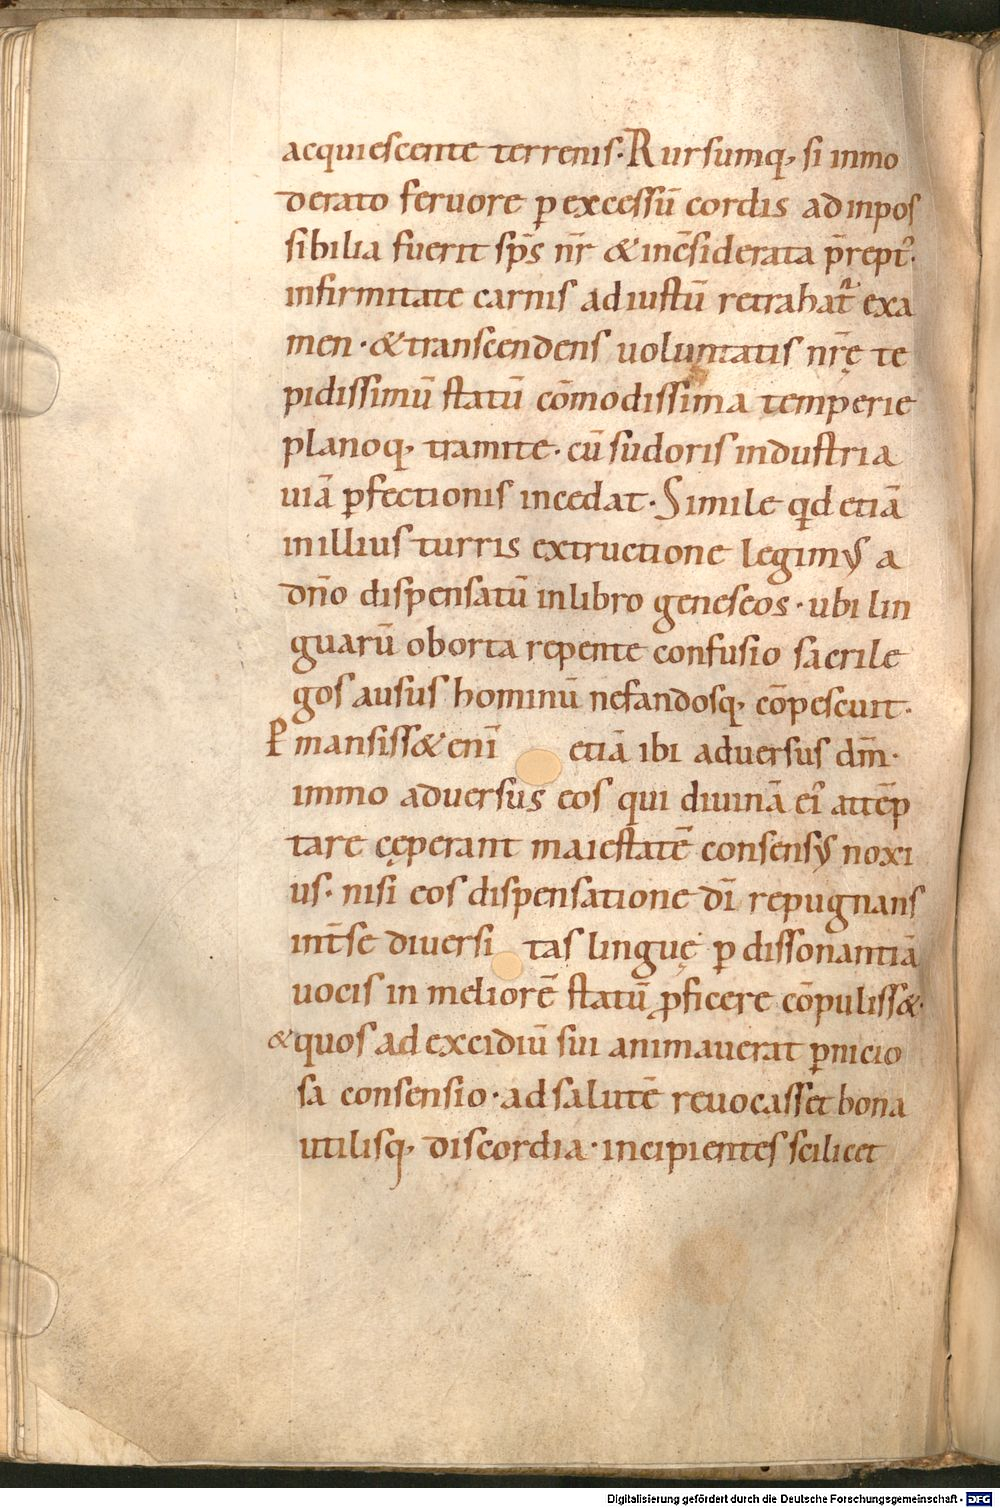 acquiescente terrenis. Rursumq, si inmo
derato feruore p excessū cordis ad inpos
sibilia fuerit sp̄s nr̄ & incs̄iderata p̄rept᷑.
infirmitate carnis ad iustū retrahat᷑ exa
men. & transcendens uoluntatis nr̄ę te
pidissimū statū cōmodissima temperie
planoq, tramite. cū sudoris industria
uiā ꝑfectionis incedat. Simile qd etiā
in illius turris extructione legimus a
dn̄o dispensatū in libro geneseos. ubi lin
guarū oborta repente confusio sacrile
gos ausus hominū nefandosq, cōpescuit.
Ꝑmansiss& enī etiā ibi aduersus dm̄.
immo aduersus eos qui diuinā ei᷑ attēp
tare cęperant maiestatē consensus noxi
us. nisi eos dispensatione dī repugnans
int̄se diuersi tas linguę p dissonantiā
uocis in meliorē statū ꝓficere cōpuliss&.
& quos ad excidiū sui animauerat ꝑnicio
sa consensio. ad salutē reuocasset bona
utilisq, discordia. incipientes scilicet
Digitalisierung gefördert durch die Deutsche Forschungsgemeinschaft - DFG